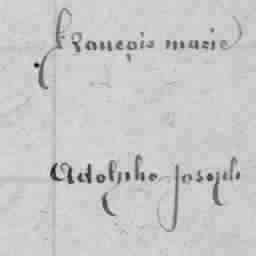 François marie
Adolphe joseph